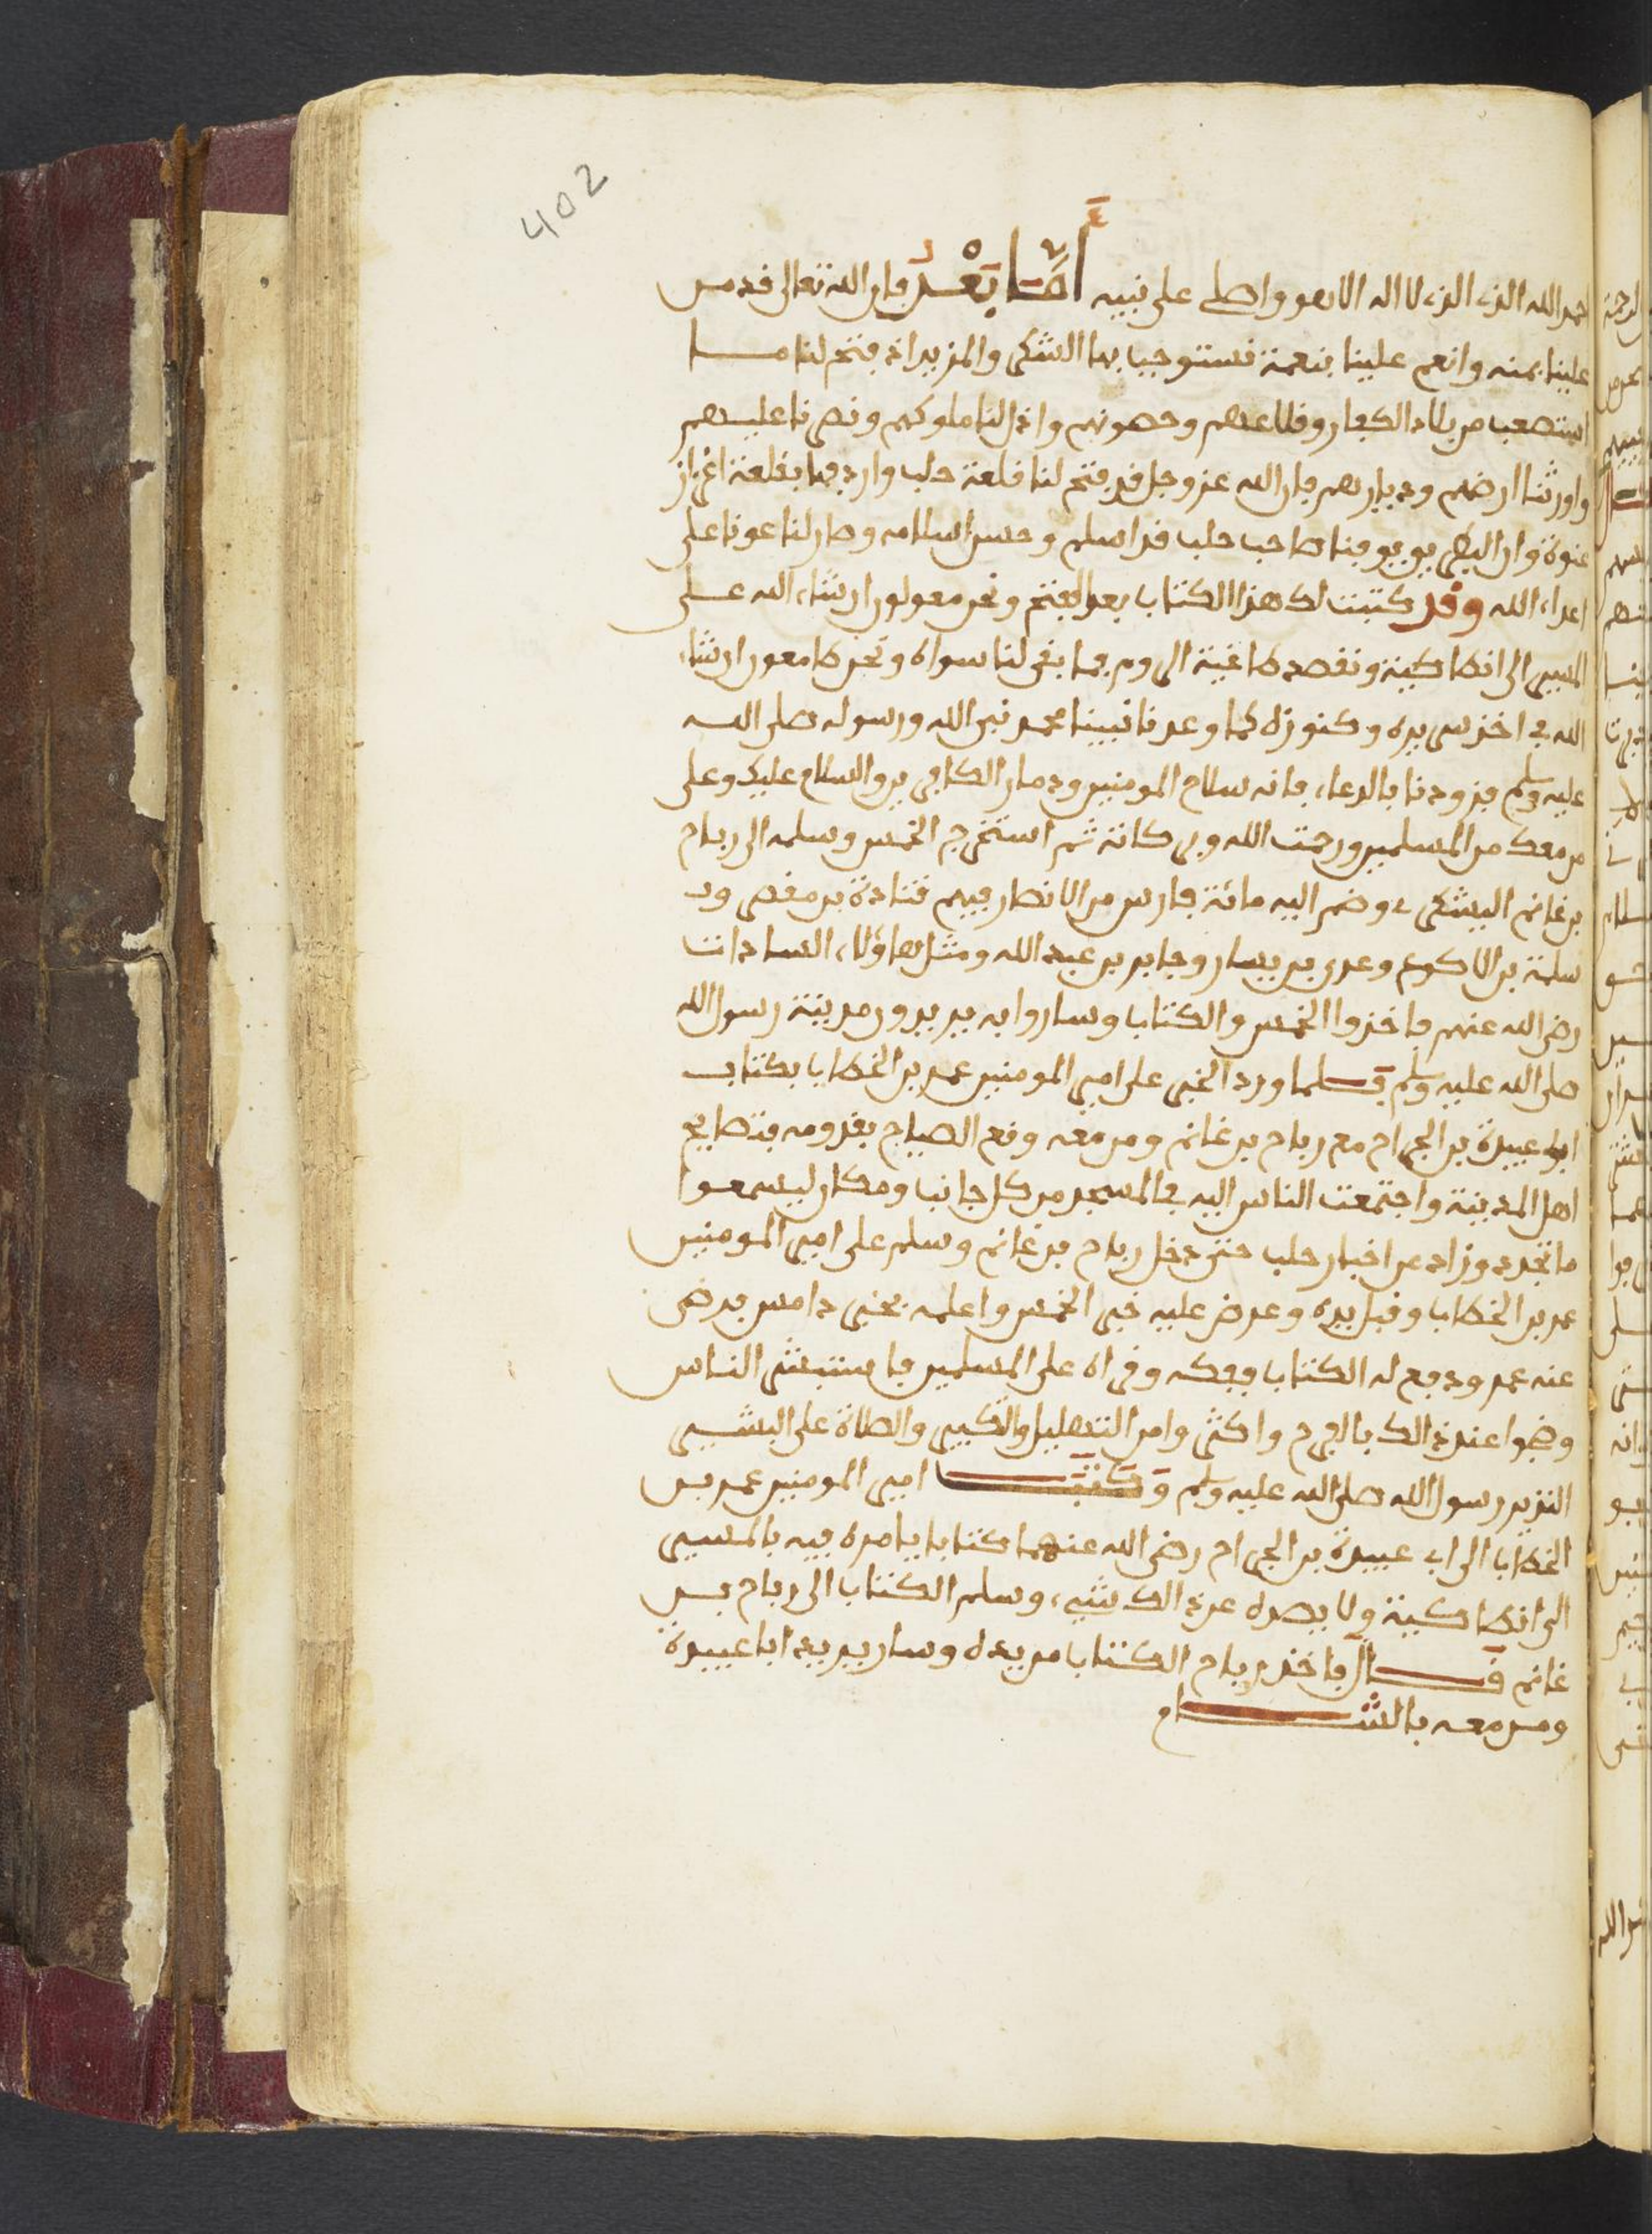 402
احمد الله الذي الذي لا اله الا هو واصلي على نبيه أَمَّا بَعْدُ فان الله تعالى قد من
علينا بمنه وانعم علينا بنعمة نستوجب بها الشكر والمزيد اذ فتح لنا ما
استصعب من بلاد الكفار وقلاعهم وحصونهم واذل لنا ملوكهم ونصرنا عليهم
واورثنا ارضهم وديارهم فان الله عز وجل قد فتح لنا قلعة حلب واردفها بقلعة اعزاز
عنوة وان البطر يوفنا صاحب حلب قد اسلم وحسن اسلامه وصار لنا عونا على
اعداء الله وقد كتبت لك هذا الكتاب بعد الفتح ونحن معولون ان شاء الله على
المسير الى انطاكية ونقصد طاغية الروم فما بقى لنا سواه ونحن طامعون ان شاء
الله في اخذ سريره وكنوزه كما وعدنا نبينا محمد نبي الله ورسوله صلى الله
عليه وسلم فزودنا بالدعاء فانه سلاح المومنين ودمار الكافرين والسلام عليك وعلى
من معك من المسلمين ورحمت الله وبركاته ثم استخرج الخمس وسلمه الى رباح
بن غانم اليشكري وضم اليه مائة فارس من الانصار فيهم قتادة بن مغصرود
سلمة بن الاكوع وعدي بن يسار وجابر بن عبد الله ومثل هاؤلاء السادات
رضى الله عنهم فاخذوا الخمس والكتاب وساروا به يريدون مدينة رسول الله
صلى الله عليه وسلم فلما ورد الخبر على امير المومنين عمر بن الخطاب بكتاب
ابو عبيدة بن الجراح مع رباح بن غانم ومن معه وقع الصياح بقدومه فتصايح
اهل المدينة واجتمعت الناس اليه في المسجد من كل جانب ومكان ليسمعوا
ما تجدد وزاد من اخبار حلب حتى دخل رباح بن غانم وسلم على امير المومنين
عمر بن الخطاب وقبل يده وعرض عليه خبر الخمس واعلمه بخبر دامس فرضى
عنه عمر ودفع له الكتاب ففكه وقراه على المسلمين فاستبشر الناس
وضجوا عند ذالك بالفرح واكثروا من التهليل والتكبير والصلاة على البشير
النذير رسول الله صلى الله عليه وسلم وَكَتَبَ امير المومنين عمر بن
الخطاب الى ابي عبيدة بن الجراح رضى الله عنهما كتابا يامره فيه بالمسير
الى انطاكية ولا يصده عن ذالك شيء وسلم الكتاب الى رباح بن
غانم قَالَ فاخذ رباح الكتاب من يده وسار يريد ابا عبيدة
ومن معه بالشام